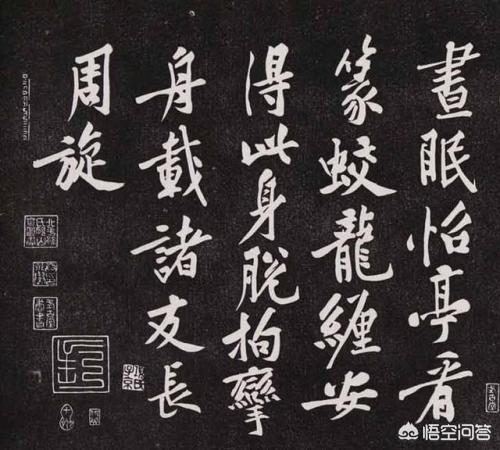 晝眠怡亭看
篆蛟龍纏安
得此身脫拘攣
舟載諸友長
周旋
悟空问答